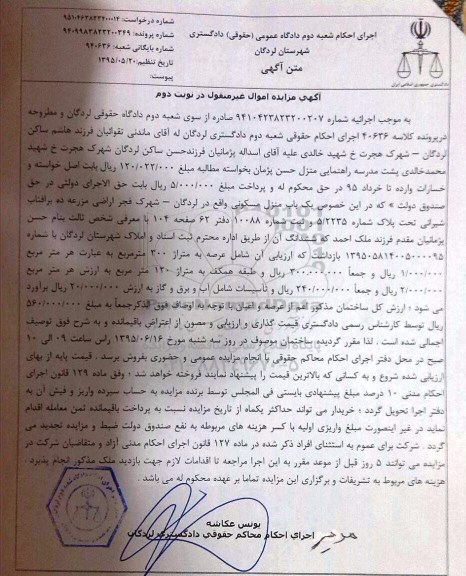 شماره درخواست: ۹۵۱۰۴۶۳۸۲۳۴۰۰۰۱۴
شماره پرونده: ۹۴۰۹۹۸۳۸۲۳۲۰۰۳۴۹
شماره بایگانی شعبه: ۹۴۰۶۳۶
تاریخ تنظیم: ۱۳۹۵/۰۵/۲۰
پیوست:
اجرای احکام شعبه دوم دادگاه عمومی (حقوقی) دادگستری
شهرستان لردگان
متن آگهی
دادگستری کل استان
آگهی مزایده اموال غیرمنقول در نوبت دوم
به موجب اجرائیه شماره ۹۴۱۰۴۲۳۸۲۳۲۰۰۲۰۷ صادره از سوی شعبه دوم دادگاه حقوقی لردگان و مطروحه
درپرونده کلاسه ۴۰۶۳۶ اجرای احکام حقوقی شعبه دوم دادگستری لردگان له آقای ماندنی تقوائیان فرزند هاشم ساکن
لردگان – شهرک هجرت خ شهید خالدی علیه آقای اسداله پژمانیان فرزندحسن ساکن لردگان شهرک هجرت خ شهید
محمدخالدی پشت مدرسه راهنمایی منزل حسن پژمان بخواسته مطالبه مبلغ ۱۲۰/۰۲۲/۰۰۰ ریال بابت اصل خواسته و
خسارات وارده تا خرداد ۹۵ در حق محکوم له و پرداخت مبلغ ۵/۰۰۰/۰۰۰ ریال بابت حق الاجرای دولتی در حق
صندوق دولت » که در این خصوص یک باب منزل مسکونی واقع در لردگان – شهرک فجر اراضی مزرعه ده برافتاب
شیرانی تحت پلاک شماره ۵/۲۲۳۵ و ثبت شماره ۱۰۰۸۸ دفتر ۶۲ صفحه ۱۰۴ با معرفی شخص ثالث بنام حسن
پژمانیان مقدم فرزند ملک احمد که ششدانگ آن از طریق اداره محترم ثبت اسناد و املاک شهرستان لردگان با شماره
۱۳۹۵۰۵۸۱۴۰۰۵۰۰۰۰۹۵ بازداشت که ارزیابی آن شامل عرصه به متراژ ۳۰۰ مترمربع به عبارت هر متر مربع
۱/۰۰۰/۰۰۰ ریال و جمعاً ۳۰۰.۰۰۰.۰۰۰ ریال و طبقه همکف به متراژ ۱۲۰ متر مربع به ارزش هر متر مربع
۲/۰۰۰/۰۰۰ ریال و جمعاً ۲۴۰/۰۰۰/۰۰۰ ریال و تأسیسات شامل آب و برق و گاز به ارزش ۲۰/۰۰۰/۰۰۰ ریال براورد
می شود ؛ ارزش کل ساختمان مذکور اعم از عرصه و اعیان با توجه به اوصاف فوق الذکرجمعاً به مبلغ ۵۶۰/۰۰۰/۰۰۰
ریال توسط کارشناس رسمی دادگستری قیمت گذاری و ارزیابی و مصون از اعتراض باقیمانده و به شرح فوق توصیف
اجمالی شده است . لذا مقرر گردیده ساختمان موصوف در روز سه شنبه مورخ ۱۳۹۵/۰۶/۱۶ راس ساعت ۰۹ الی ۱۰
صبح در محل دفتر اجرای احکام محاکم حقوقی با انجام مزایده عمومی و حضوری بفروش برسد . قیمت پایه از بهای
ارزیابی شده شروع و به کسانی که بالاترین قیمت را پیشنهاد نمایند فروخته خواهد شد ؛ وفق ماده ۱۲۹ قانون اجرای
احکام مدنی ۱۰ درصد مبلغ پیشنهادی بایستی فی المجلس توسط برنده مزایده به حساب سپرده واریز و فیش آن به
دفتر اجرا تحویل گردد ؛ خریدار می تواند حداکثر یکماه از تاریخ مزایده نسبت به پرداخت باقیمانده ثمن معامله اقدام
نماید در غیر اینصورت مبلغ واریزی اولیه با کسر هزینه های مربوطه به نفع صندوق دولت ضبط و مزایده تجدید می
گردد . شرکت برای عموم به استثنای افراد ذکر شده در ماده ۱۲۷ قانون اجرای احکام مدنی آزاد و متقاضیان شرکت در
مزایده می توانند ۵ روز قبل از موعد مقرر به این اجرا مراجعه تا اقدامات لازم جهت بازدید ملک مذکور انجام پذیرد .
هزینه های مربوط به تشریفات و برگزاری این مزایده تماما بر عهده محکوم له می باشد .
یونس عکاشه
اجرای احکام محاکم حقوقی دادگستری لردگان